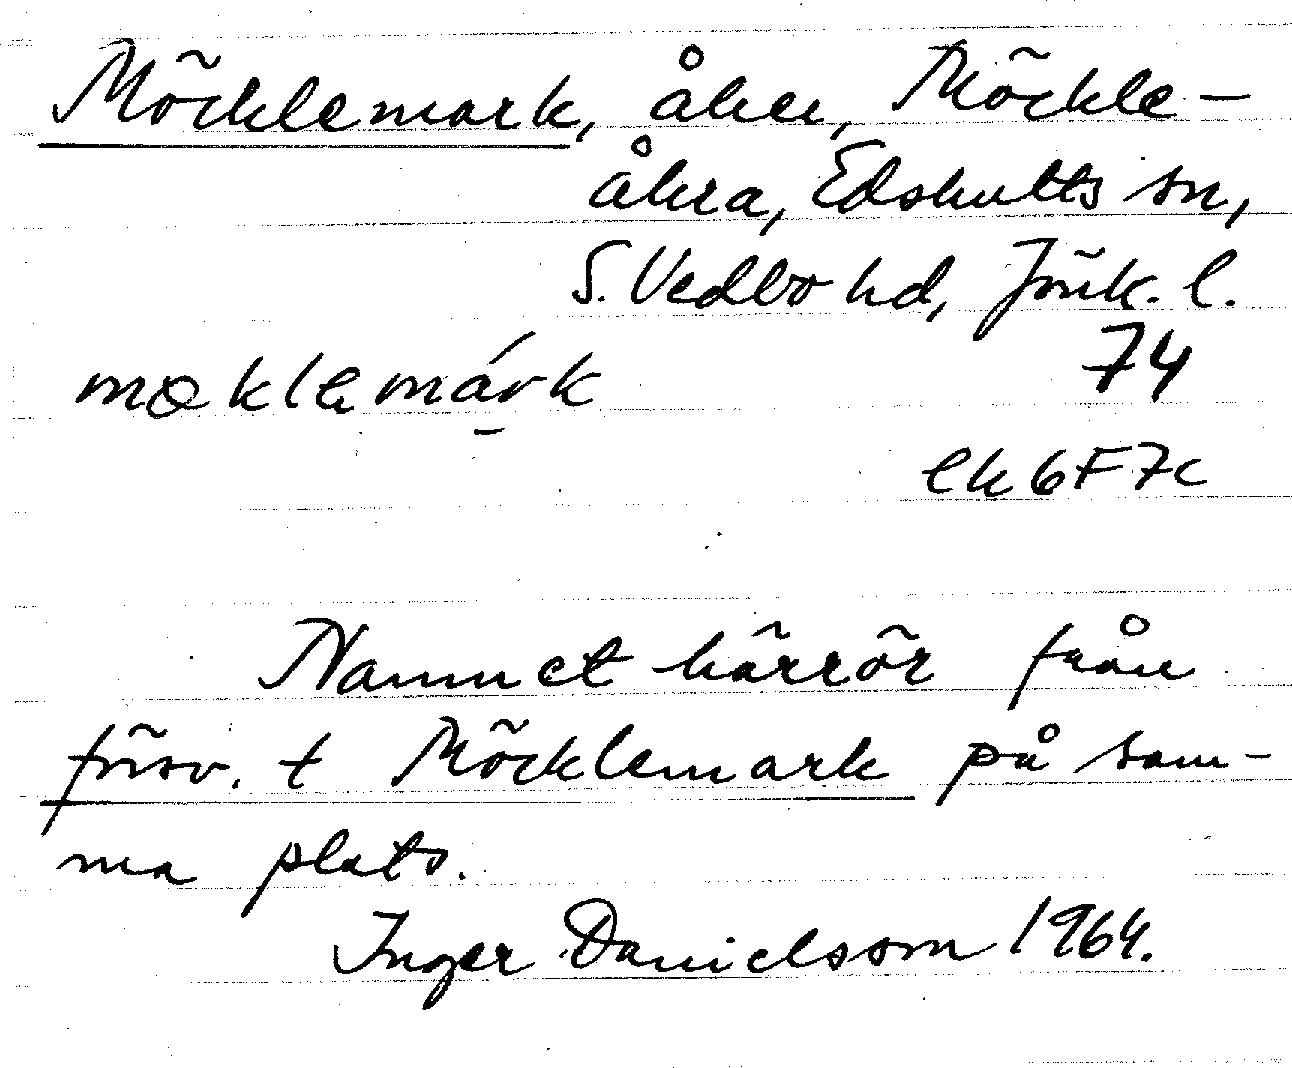 Möcklemark, åker, Möckle-
åkra, Edshults sn,
S. Vedbo hd, Jönk. l.
møklemárk 74
ek 6F7c
Namnet härrör från
försv. t Möcklemark på sam-
ma plats.
Inger Danielsson 1964.